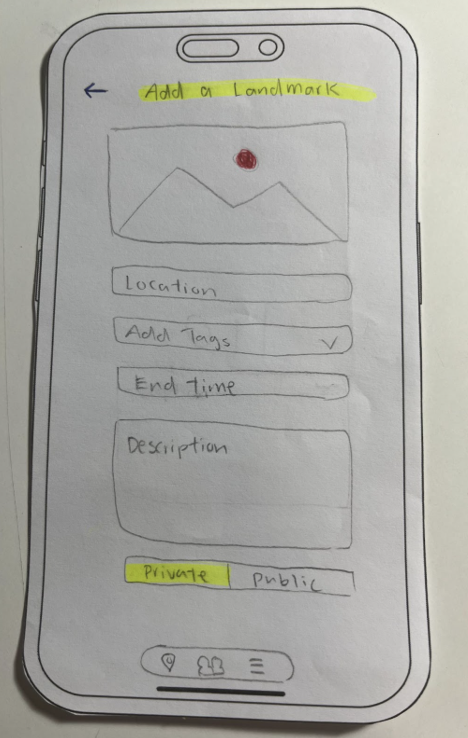 Add a Landmark
Location
Add Tags
End time
Description
Private
Public